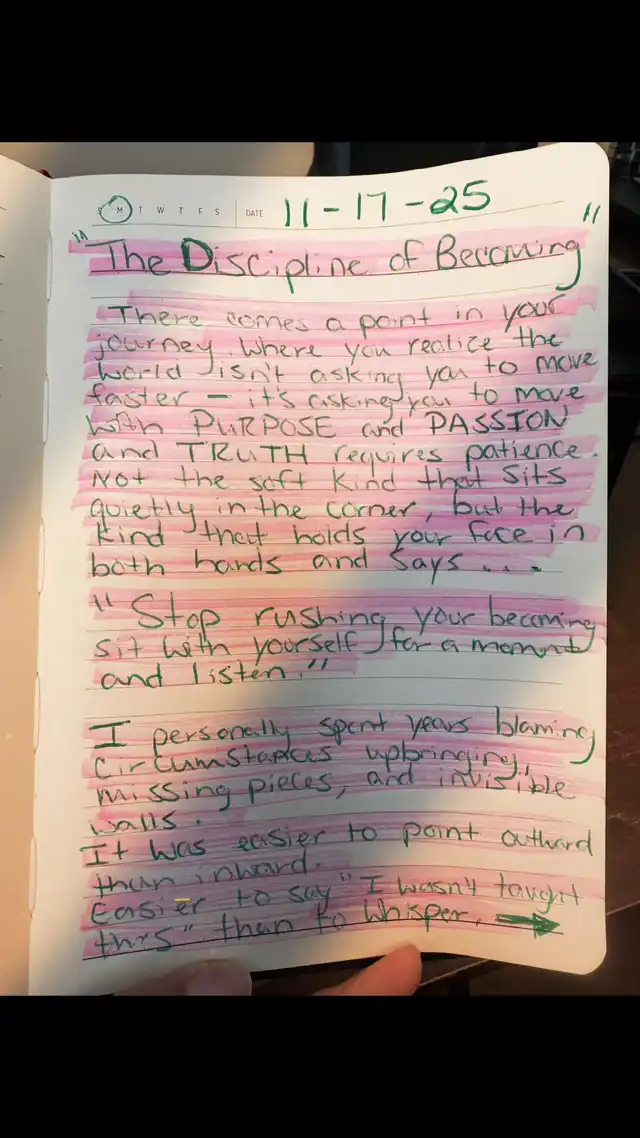 S M T W T F S DATE 11-17-25
"The Discipline of Becoming"
There comes a point in your
journey. Where you realize the
world isn't asking you to move
faster – it's asking you to move
with PURPOSE and PASSION
and TRUTH requires patience.
Not the soft kind that sits
quietly in the corner, but the
kind that holds your face in
both hands and says ....
"Stop rushing your becoming
sit with yourself for a moment
and listen."
I personally spent years blaming
circumstances upbringing,
missing pieces, and invisible
walls.
It was easier to point outward
than inward.
Easier to say "I wasn't taught
this" than to whisper. →